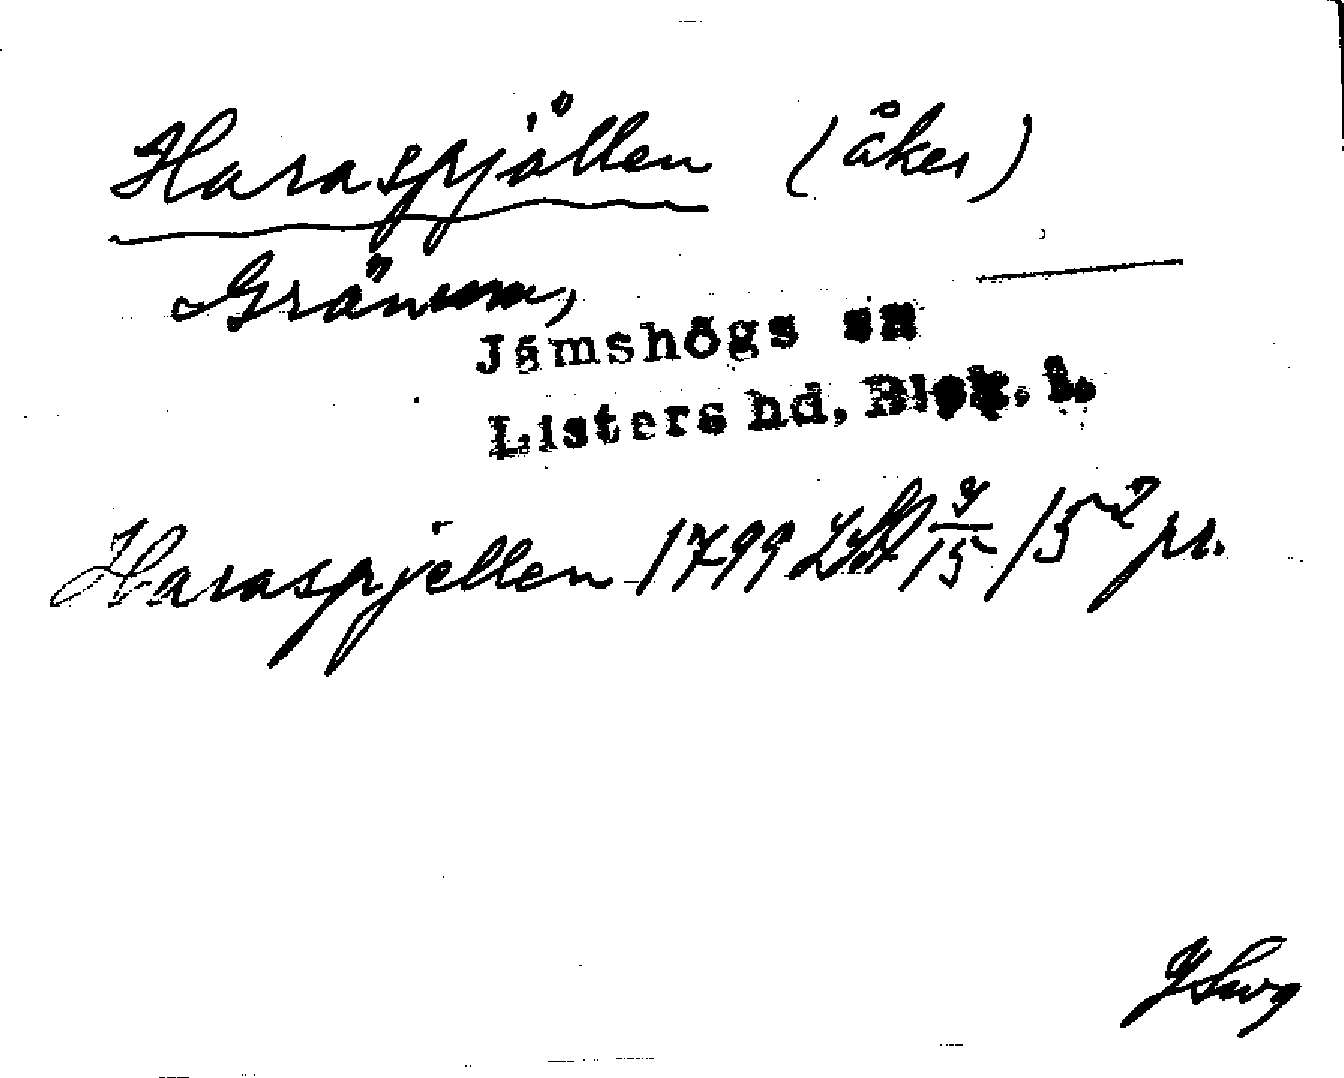 Haraspjällen (åker)
Gränum,
Jämshögs sn
Listers hd, Blek. l.
Haraspjellen 1799 LSA 9/15 / 15² pr.